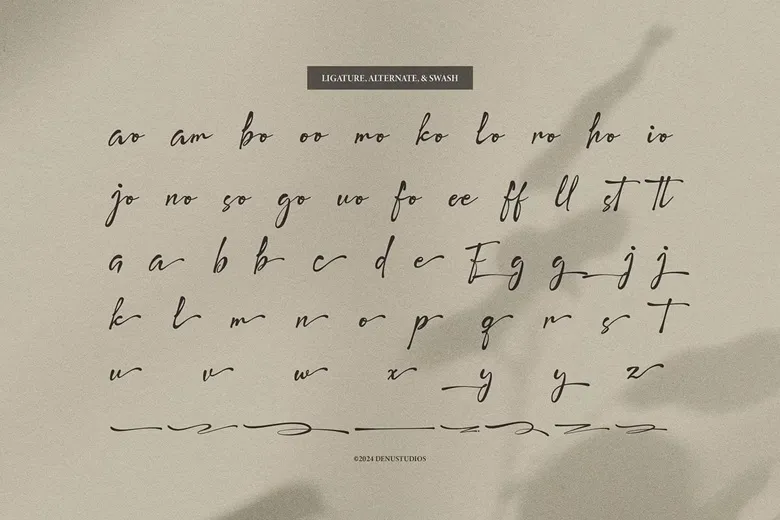 LIGATURE, ALTERNATE, & SWASH
ao am bo oo mo ko lo ro ho io
jo no so go uo fo ee ff ll st tt
a a b b c d e E g g j j
k l m n o p q r s T
u v w x y y z
©2024 DENUSTUDIOS